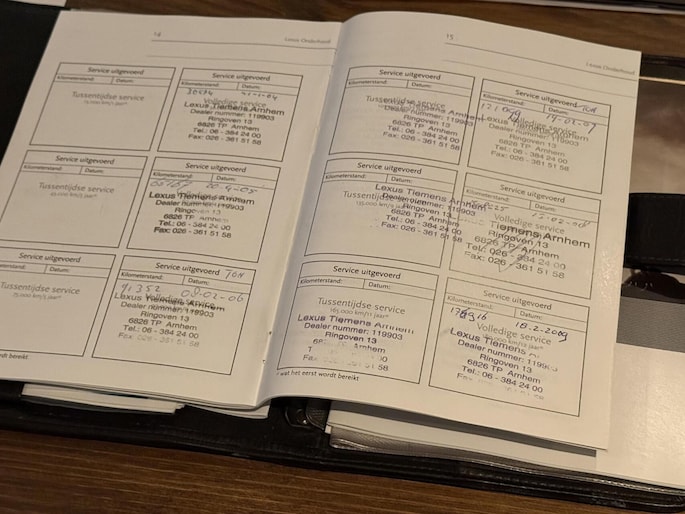 14
Lexus Onderhoud
Service uitgevoerd
Kilometerstand: Datum:
Tussentijdse service
Service uitgevoerd
Kilometerstand: Datum:
Volledige service
Lexus Tiemens Arnhem
Dealer nummer: 119903
Ringoven 13
6826 TP Arnhem
Tel.: 06 - 384 24 00
Fax: 026 - 361 51 58
Service uitgevoerd
Kilometerstand: Datum:
Tussentijdse service
Service uitgevoerd
Kilometerstand: Datum:
20-4-05
Lexus Tiemens Arnhem
Dealer nummer: 119903
Ringoven 13
6826 TP Arnhem
Tel.: 06 - 384 24 00
Fax: 026 - 361 51 58
Service uitgevoerd
Datum:
Tussentijdse service
Service uitgevoerd
Kilometerstand: Datum:
91352 08-02-06
Volledige service
Lexus Tiemens Arnhem
Dealer nummer: 119903
Ringoven 13
6826 TP Arnhem
Tel.: 06 - 384 24 00
Fax: 026 - 361 51 58
wordt bereikt.
15
Lexus Onderhoud
Service uitgevoerd
Kilometerstand: Datum:
Tussentijdse service
Lexus Tiemens Arnhem
Dealer nummer: 119903
Ringoven 13
6826 TP Arnhem
Tel.: 06 - 384 24 00
Fax: 026 - 361 51 58
Service uitgevoerd
Kilometerstand: Datum:
14-02-07
Volledige service
Lexus Tiemens Arnhem
Dealer nummer: 119903
Ringoven 13
6826 TP Arnhem
Tel.: 06 - 384 24 00
Fax: 026 - 361 51 58
Service uitgevoerd
Kilometerstand: Datum:
Tussentijdse service
Lexus Tiemens Arnhem
Dealer nummer: 119903
Ringoven 13
6826 TP Arnhem
Tel.: 06 - 384 24 00
Fax: 026 - 361 51 58
Service uitgevoerd
Datum:
Volledige service
Tiemens Arnhem
Ringoven 13
6826 TP Arnhem
Tel.: 06 - 384 24 00
Fax: 026 - 361 51 58
Service uitgevoerd
Kilometerstand: Datum:
Tussentijdse service
165.000 km/11 jaar*
Lexus Tiemens Arnhem
Dealer nummer: 119903
Ringoven 13
Arnhem
384 24 00
51 58
Service uitgevoerd
Kilometerstand: Datum:
18-2-2009
Volledige service
Lexus Tiemens
Dealer nummer: 119903
Ringoven 13
6826 TP Arnhem
Tel.: 06 - 384 24 00
Fax 026 - 361 51 58
wat het eerst wordt bereikt